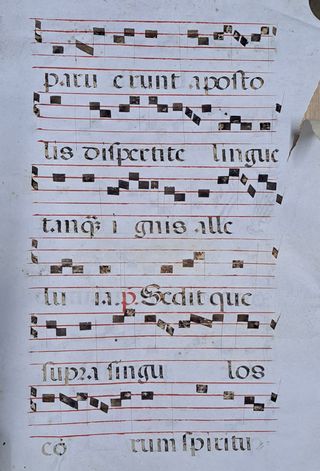 paru erunt aposto
lis dispertite lingue
tanqȝ i gnis alle
lu ia. p. Sedit que
supra singu los
eō rum spiritu